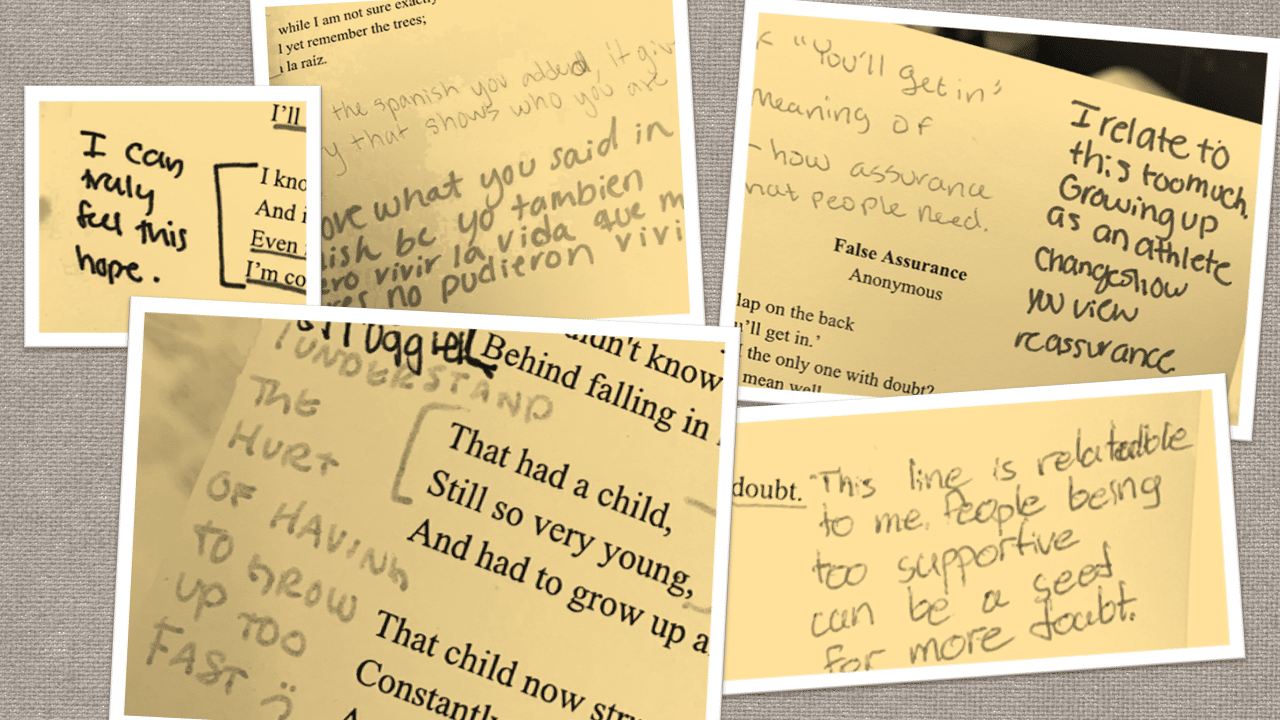 while I am not sure exactly
I yet remember the trees;
la raiz.
the spanish you added, it giv
y that shows who you are
ove what you said in
ish bc yo tambien
ero vivir la vida que m
res no pudieron vivi
I can
truly
feel this
hope.
I'll
I kno
And i
Even
I'm co
"You'll get in"
meaning of
- how assurance
hat people need.
I relate to
this too much.
Growing up
as an athlete
changes how
you view
reassurance
False Assurance
Anonymous
lap on the back
u'll get in.'
the only one with doubt?
mean well
struggled
I UNDERSTAND
THE
HURT
OF HAVING
TO GROW
UP TOO
FAST
dn't know
Behind falling in
That had a child,
Still so very young,
And had to grow up a
That child now stru
Constantly
doubt.
"This line is relatable
to me. People being
too supportive
can be a seed
for more doubt.